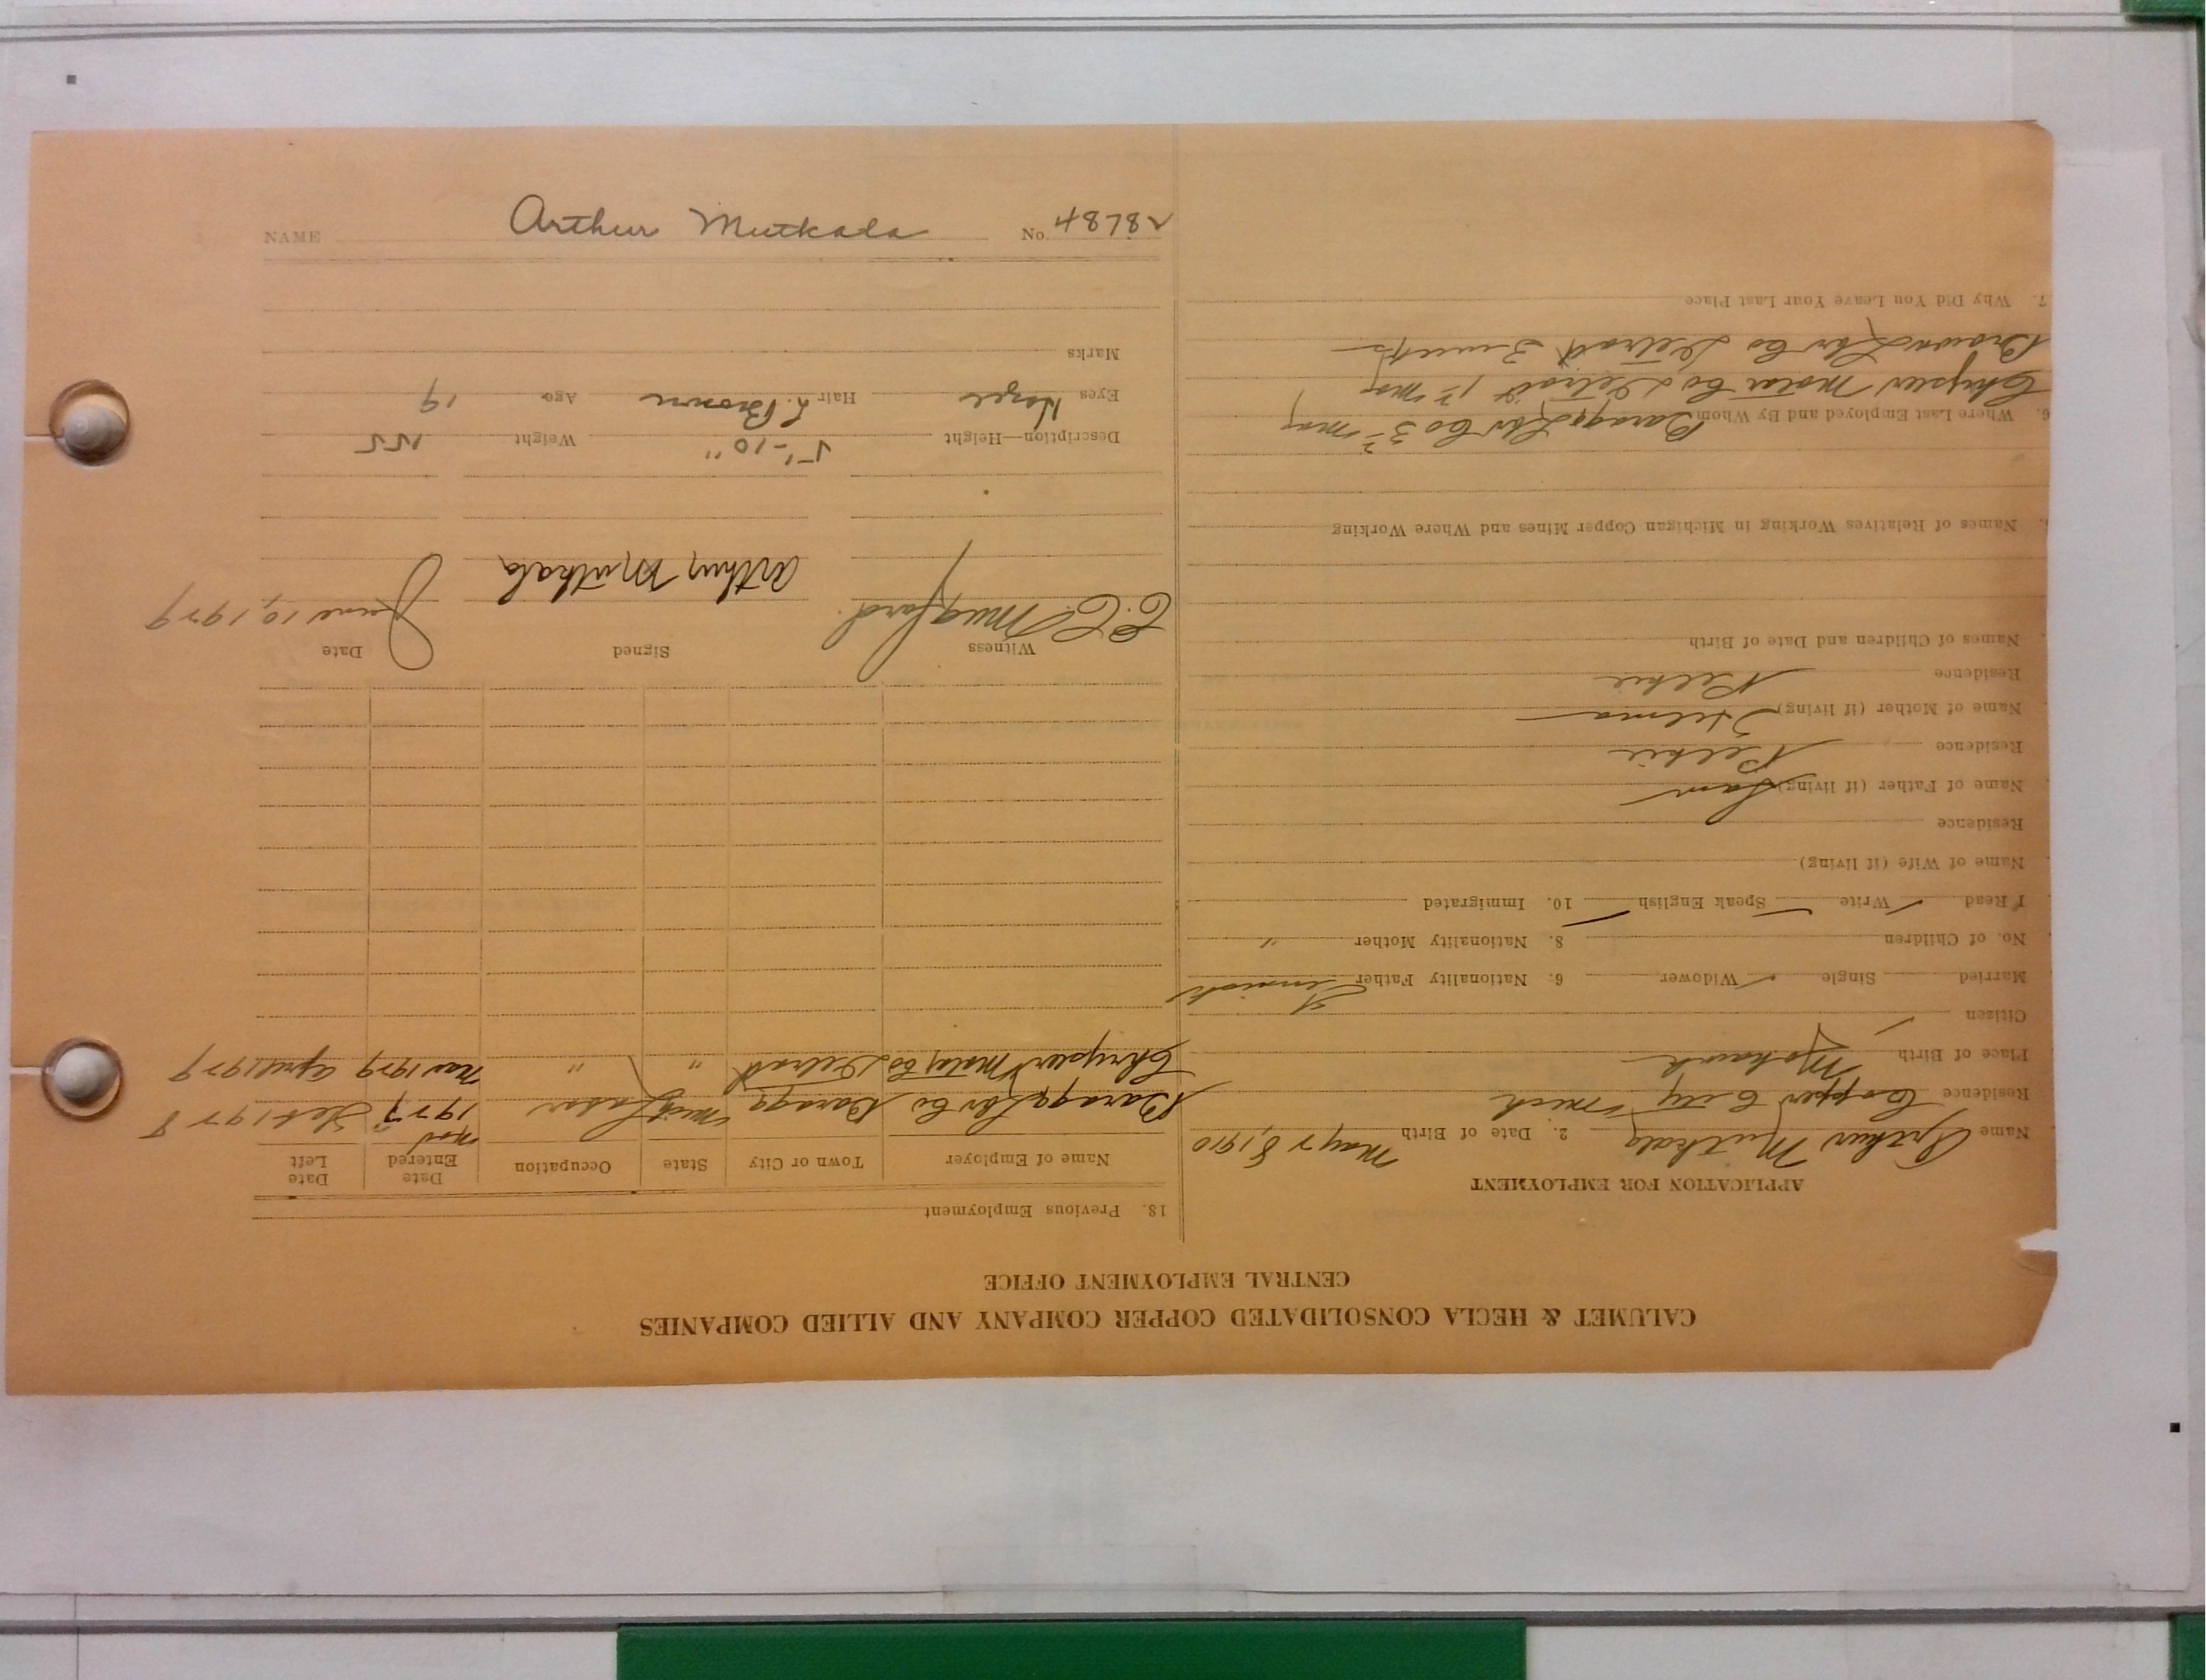 CALUMET & HECLA CONSOLIDATED COPPER COMPANY AND ALLIED COMPANIES
CENTRAL EMPLOYMENT OFFICE
APPLICATION FOR EMPLOYMENT
Name Arthur Mutkala 2. Date of Birth May 28, 1910
Residence Copper City Mich
Place of Birth Mohawk
Citizen
Married Single ✓ Widower 6. Nationality Father Finnish
No. of Children 8. Nationality Mother "
I Read ✓ Write ✓ Speak English ✓ 10. Immigrated
Name of Wife (if living)
Residence
Name of Father (if living) Sam
Residence Pelkie
Name of Mother (if living) Hilma
Residence Pelkie
Names of Children and Date of Birth
Names of Relatives Working in Michigan Copper Mines and Where Working
6. Where Last Employed and By Whom Baraga Lbr Co
Chrysler Motor Co Detroit
Brown Lbr Co Detroit 3 weeks
7. Why Did You Leave Your Last Place
18. Previous Employment
Name of Employer Town or City State Occupation Date Entered Date Left
Baraga Lbr Co Baraga Mich Labor 1927 1928
Chrysler Motor Co Detroit " " 1929 April 1929
Witness Signed Date
C. C. Mugford Arthur Mutkala June 10, 1929
Description—Height 5'-10" Weight 155
Eyes Hazel Hair L. Brown Age 19
Marks
NAME Arthur Mutkala No. 48782